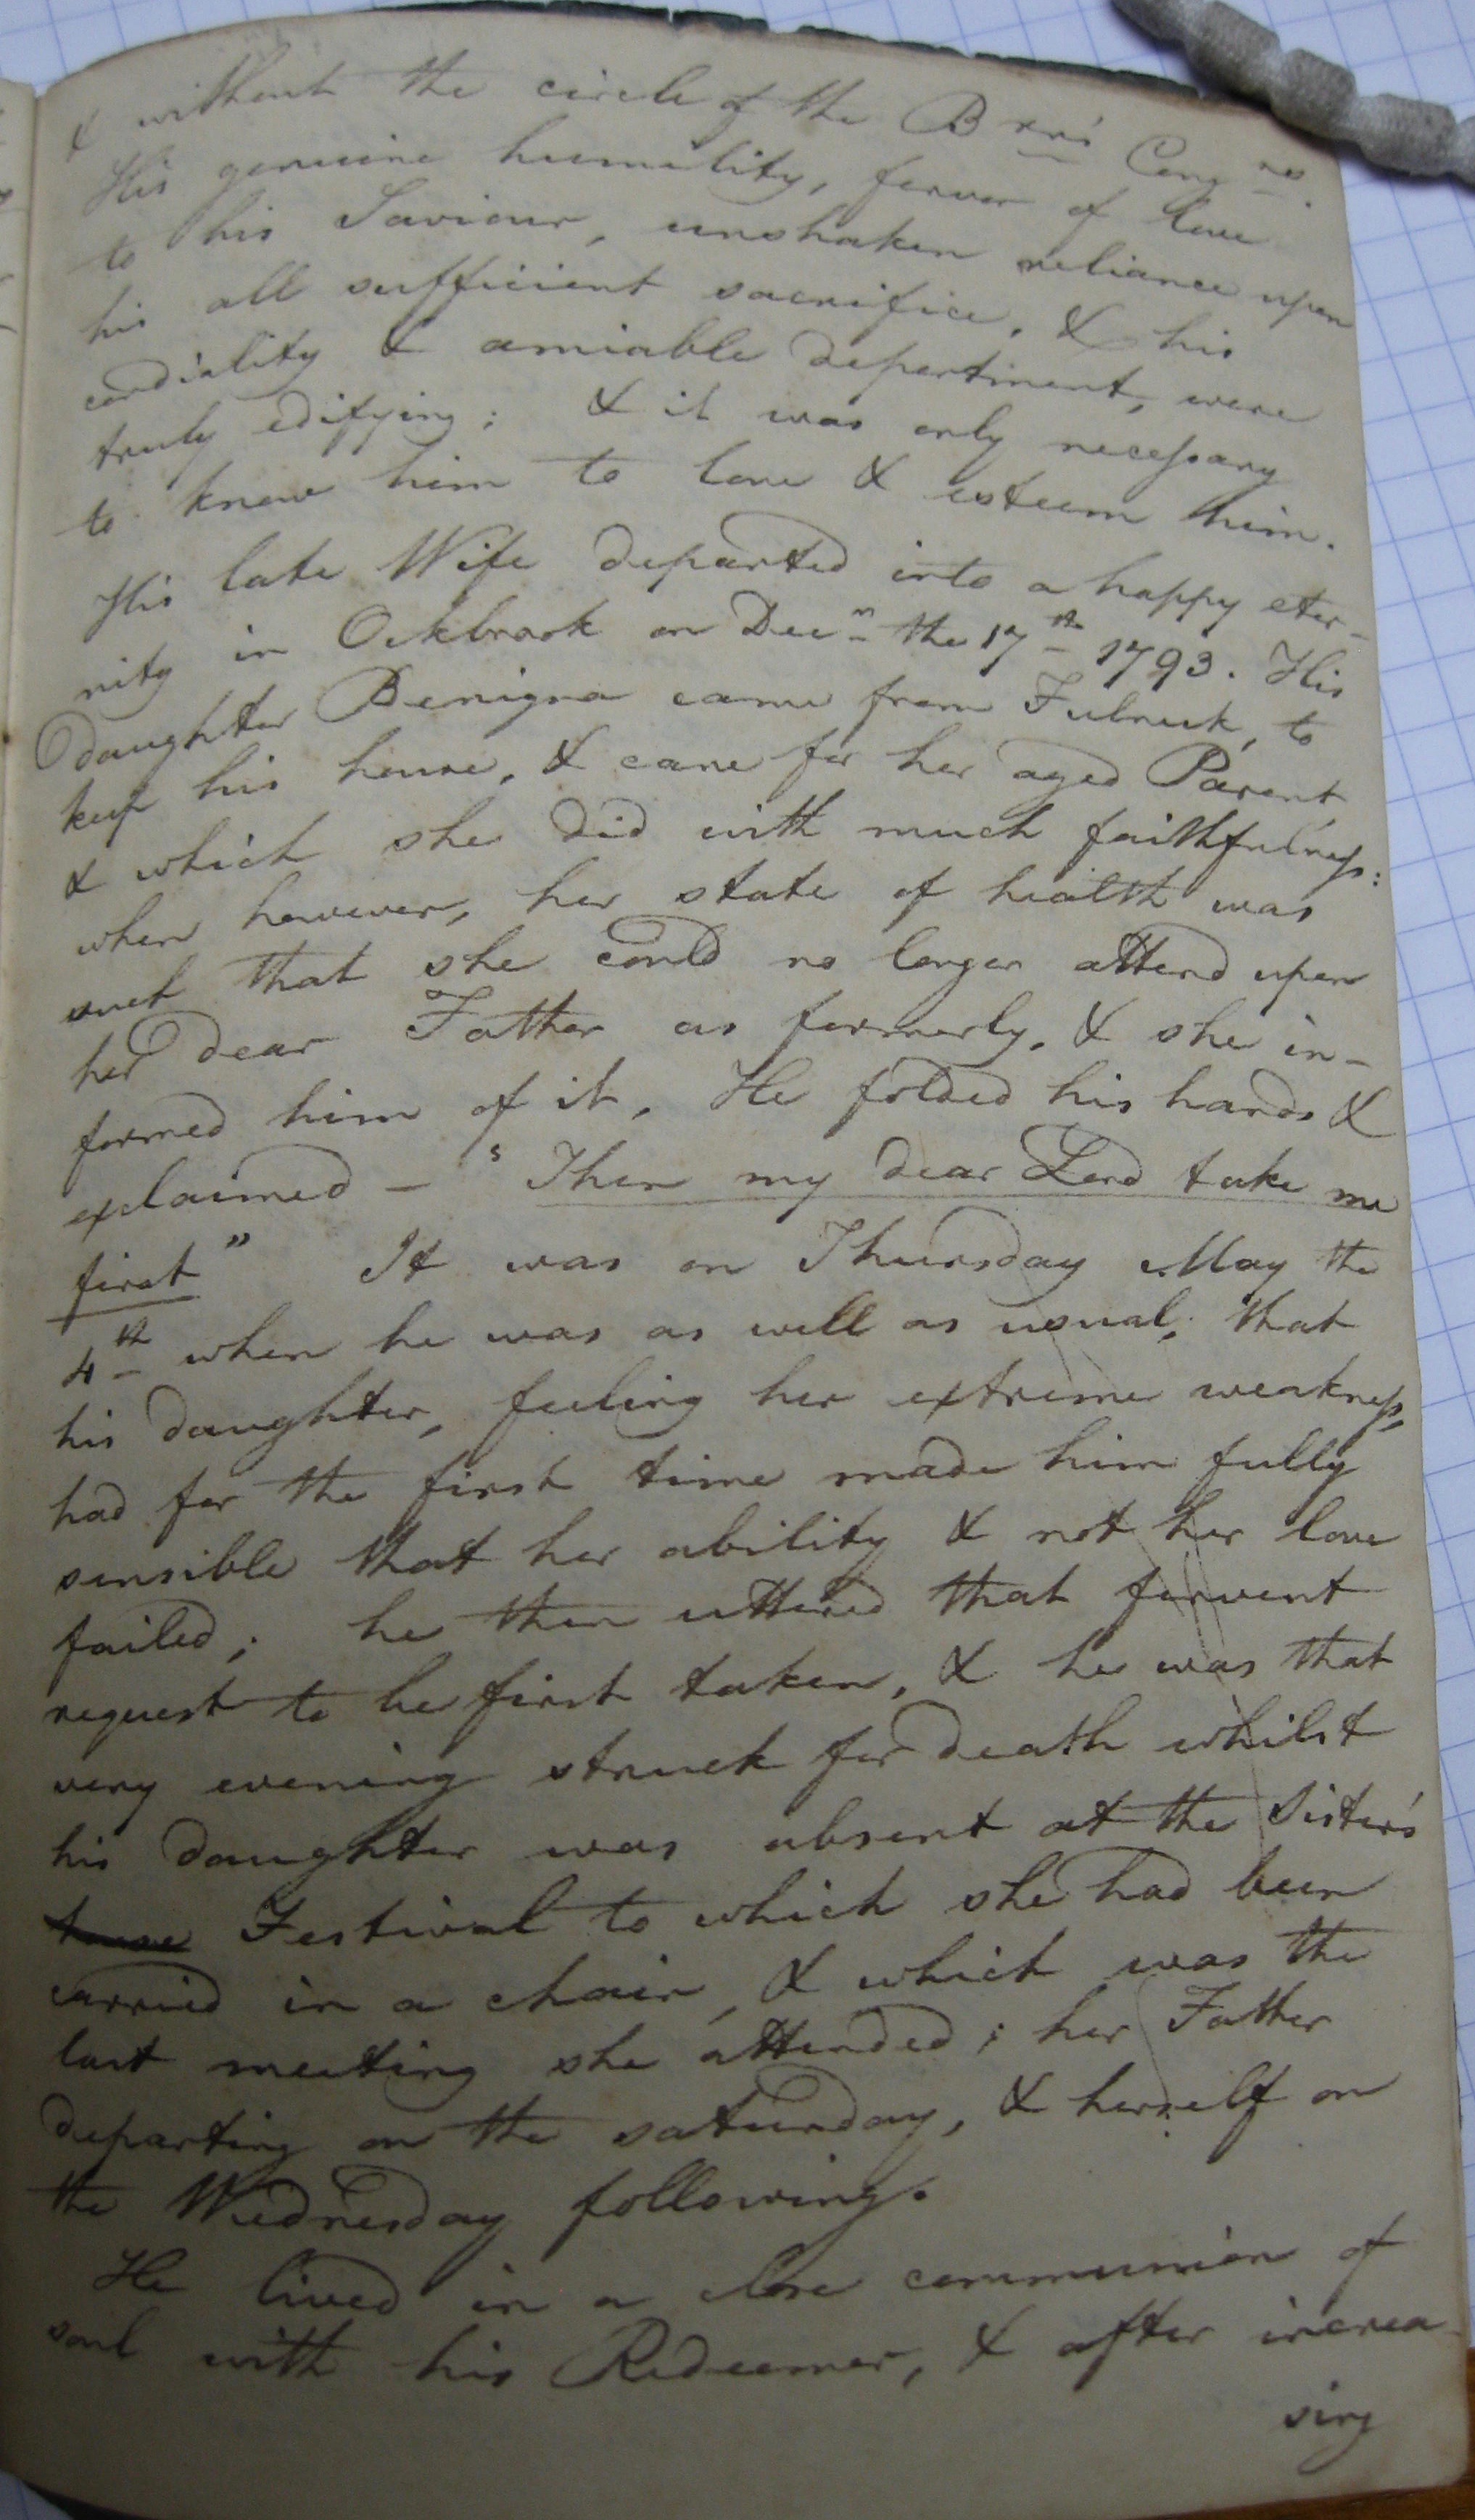 & without the circle of the Brns Congns.
His genuine humility, fervor of love
to his Saviour, unshaken reliance upon
his all sufficient sacrifice, & his
cordiality & amiable department, were
truly edifying; & it was only necessary
to know him to love & esteem him.
His late Wife departed into a happy eter-
nity in Ockbrook on Decr the 17th 1793. His
daughter Benigna came from Fulneck, to
keep his house, & care for her aged Parent
& which she did with much faithfulness:
when however, her state of health was
such that she could no longer attend upon
her dear Father as formerly, & she in-
formed him of it, He folded his hands &
exclaimed - "Then my dear Lord take me
first" It was on Thursday May the
4th when he was as well as usual; that
his daughter, feeling her extreme weakness,
had for the first time made him fully
sensible that her ability & not her love
failed; he then uttered that fervent
request to be first taken, & he was that
very evening struck for death whilst
his daughter was absent at the Sister's
Festival to which she had been
carried in a chair, & which was the
last meeting she attended; her Father
departing on the saturday, & herself on
the Wednesday following.
He lived in a close communion of
soul with his Redeemer, & after increa-
sing